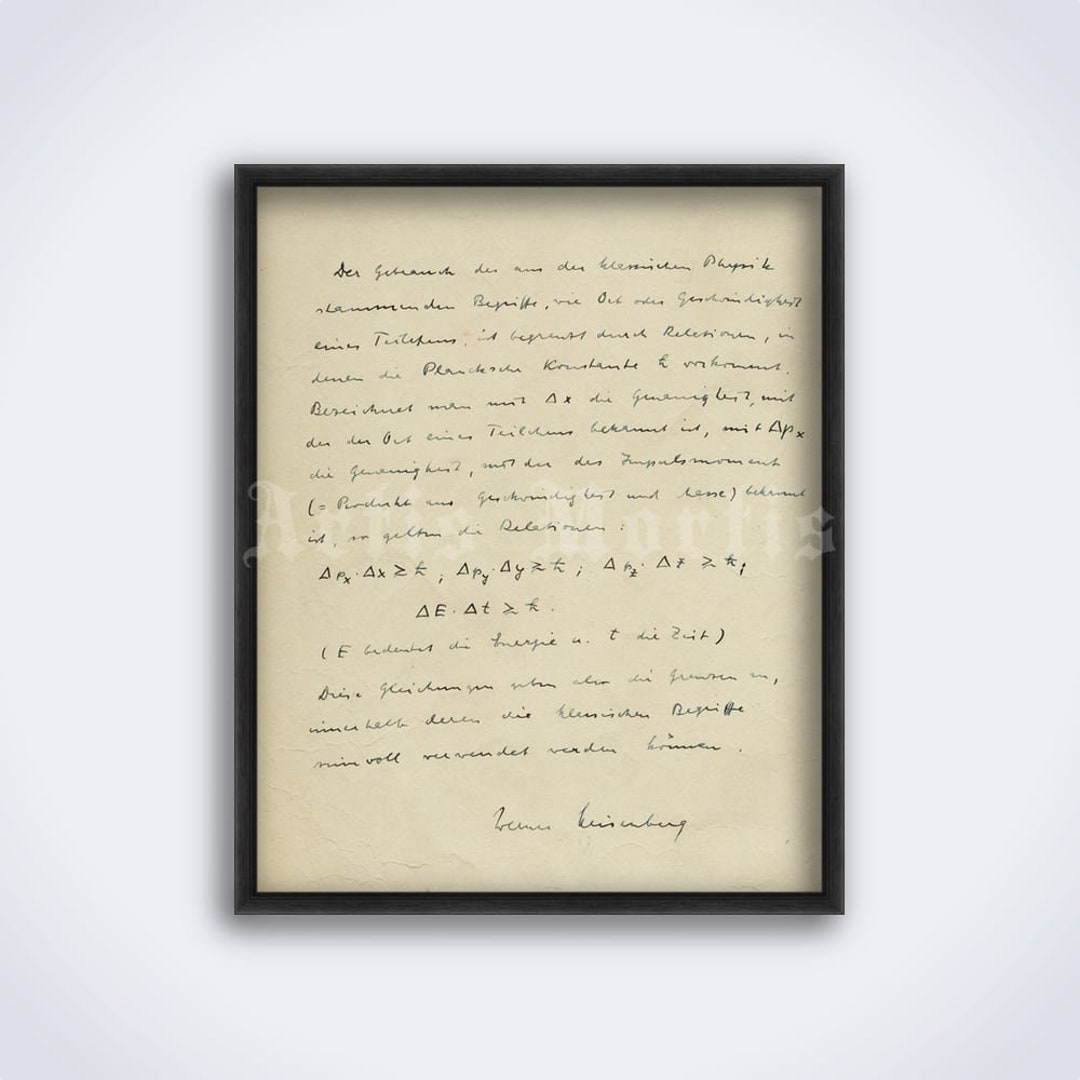 Der Gebrauch der aus der klassischen Physik
stammenden Begriffe, wie Ort oder Geschwindigkeit
eines Teilchens, ist begrenzt durch Relationen, in
denen die Plancksche Konstante ℏ vorkommt.
Bezeichnet man mit Δx die Genauigkeit, mit
der der Ort eines Teilchens bekannt ist, mit Δpₓ
die Genauigkeit, mit der das Impulsmoment
(= Produkt aus Geschwindigkeit und Masse) bekannt
ist, so gelten die Relationen:
Δpₓ·Δx ≥ ℏ ; Δp_y·Δy ≥ ℏ ; Δp_z·Δz ≥ ℏ ;
ΔE·Δt ≥ ℏ.
(E bedeutet die Energie u. t die Zeit)
Diese Gleichungen geben also die Grenzen an,
innerhalb deren die klassischen Begriffe
sinnvoll verwendet werden können.
Werner Heisenberg
Artis Mortis